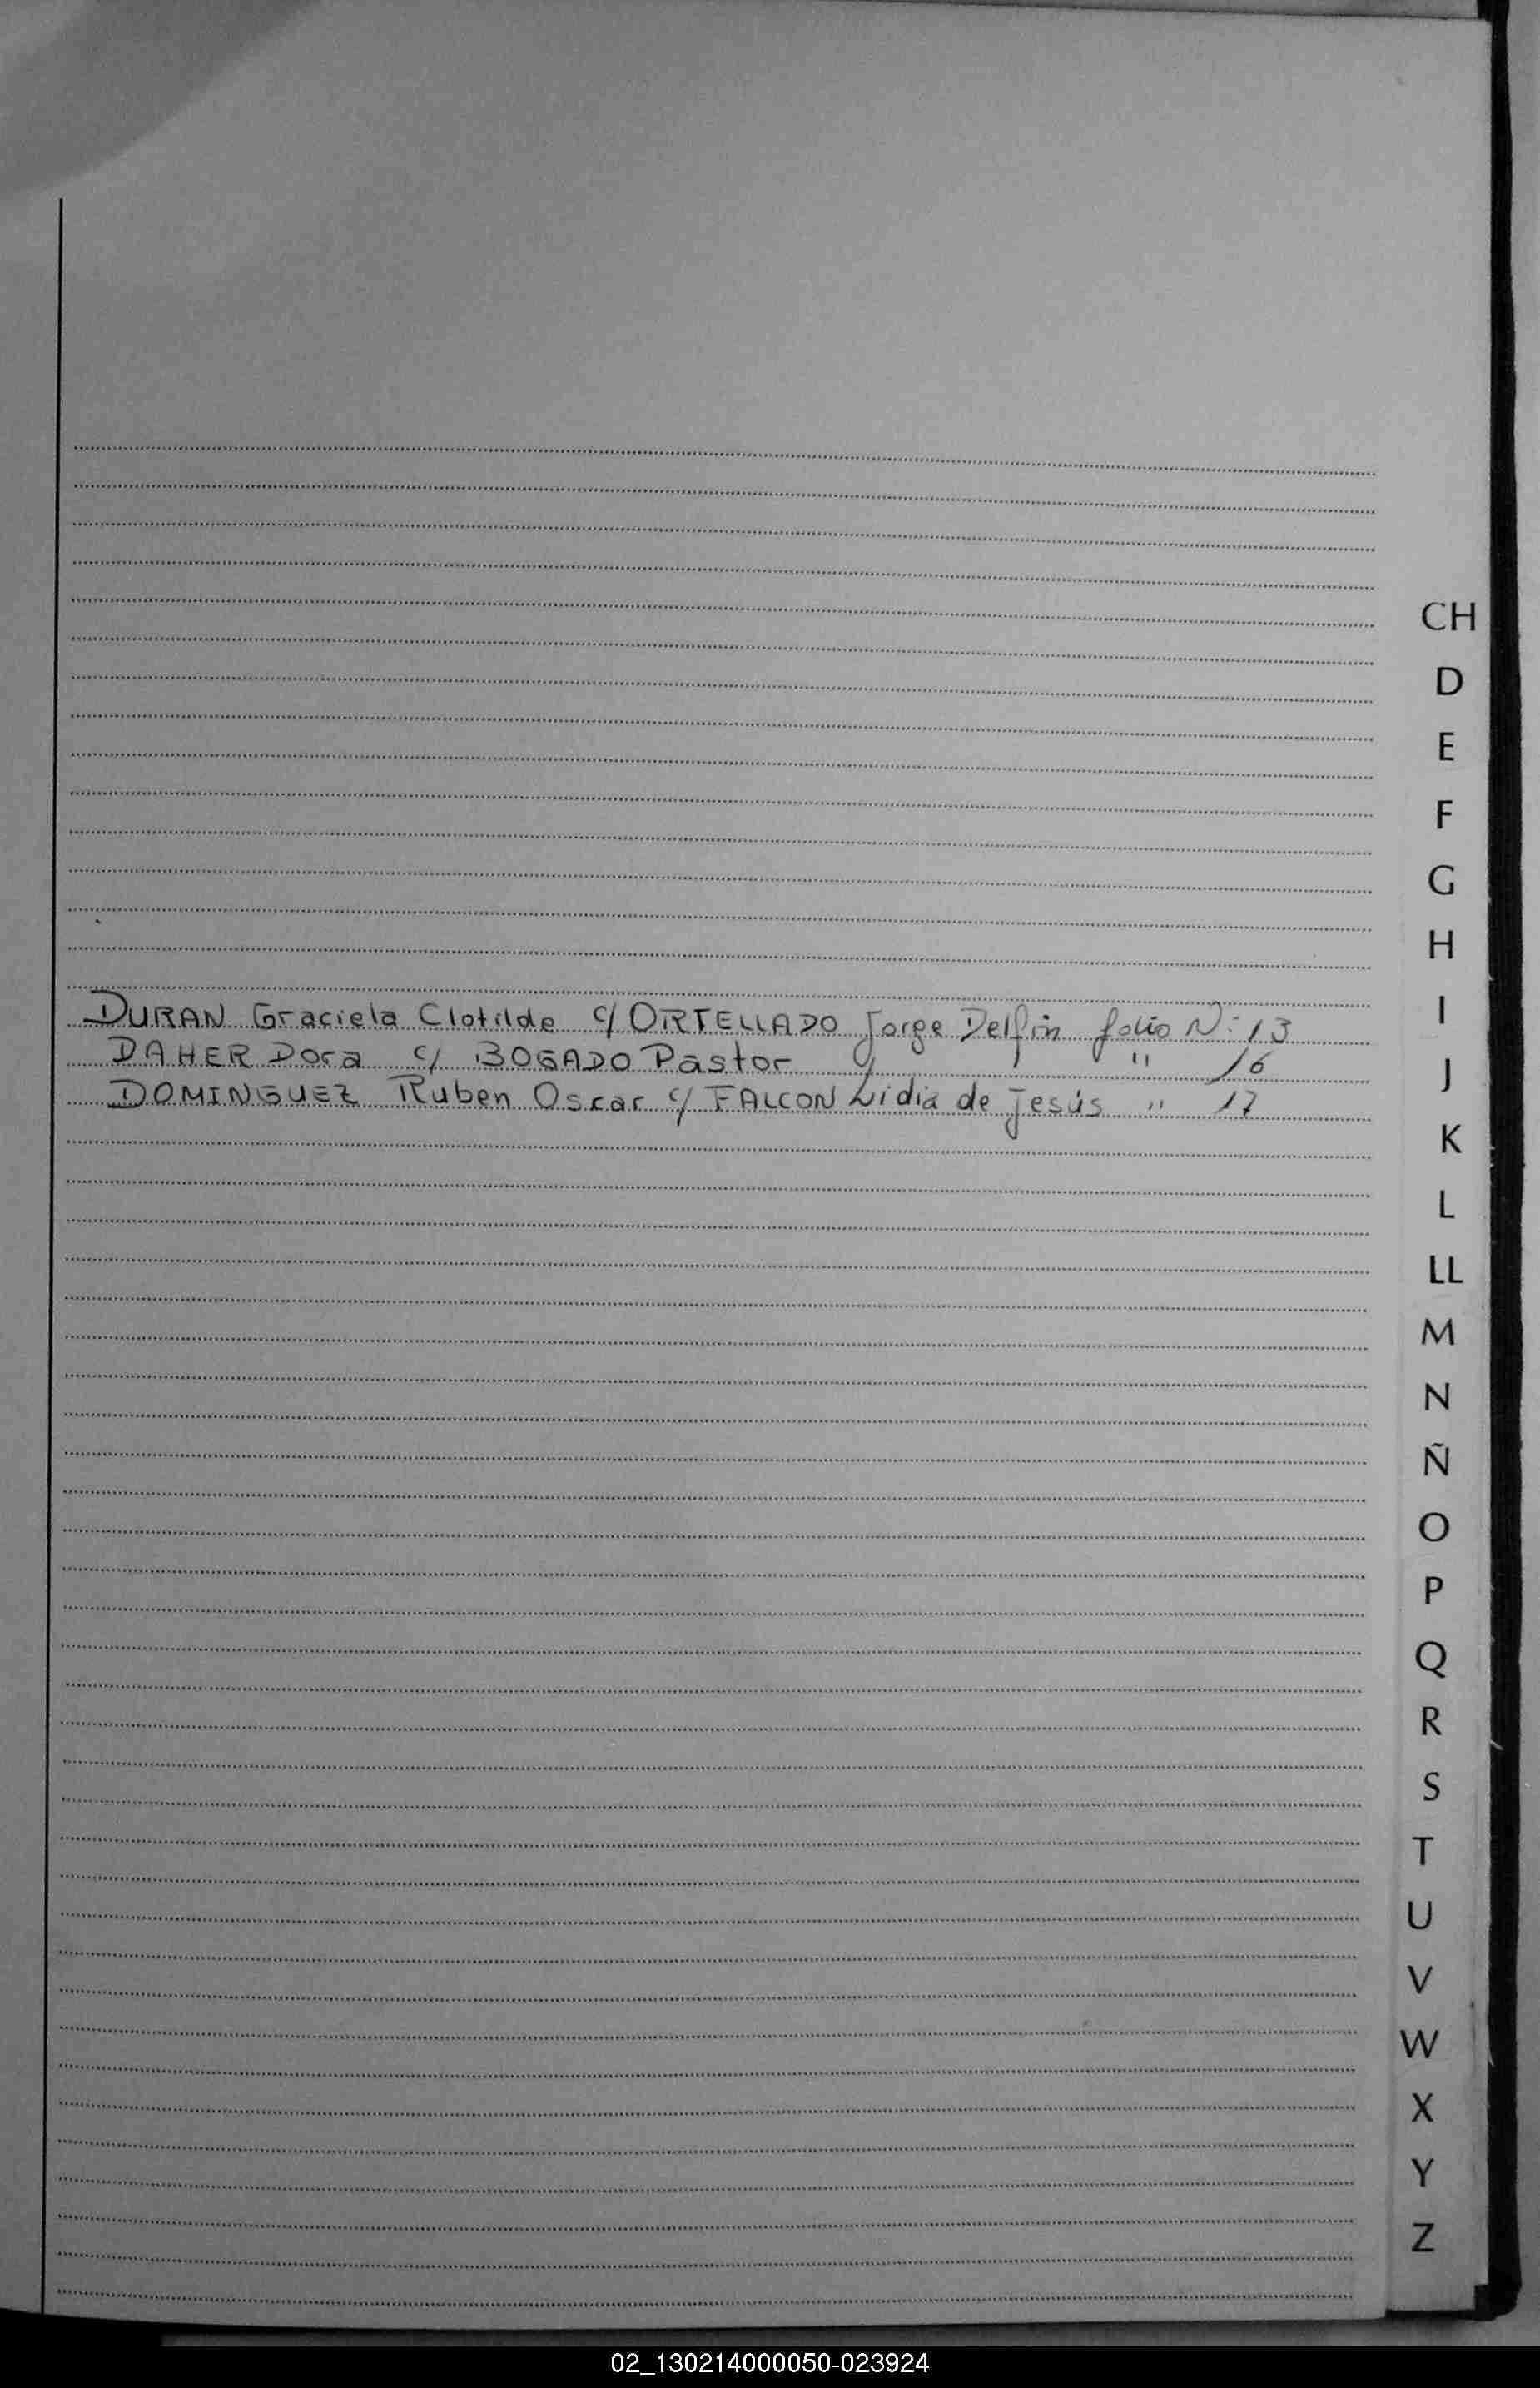 DURAN Graciela Clotilde c/ ORTELLADO Jorge Delfin folio N: 13
DAHER Dora c/ BOGADO Pastor " 16
DOMINGUEZ Ruben Oscar c/ FALCON Lidia de Jesús " 17
CH
D
E
F
G
H
I
J
K
L
LL
M
N
Ñ
O
P
Q
R
S
T
U
V
W
X
Y
Z
02_130214000050-023924